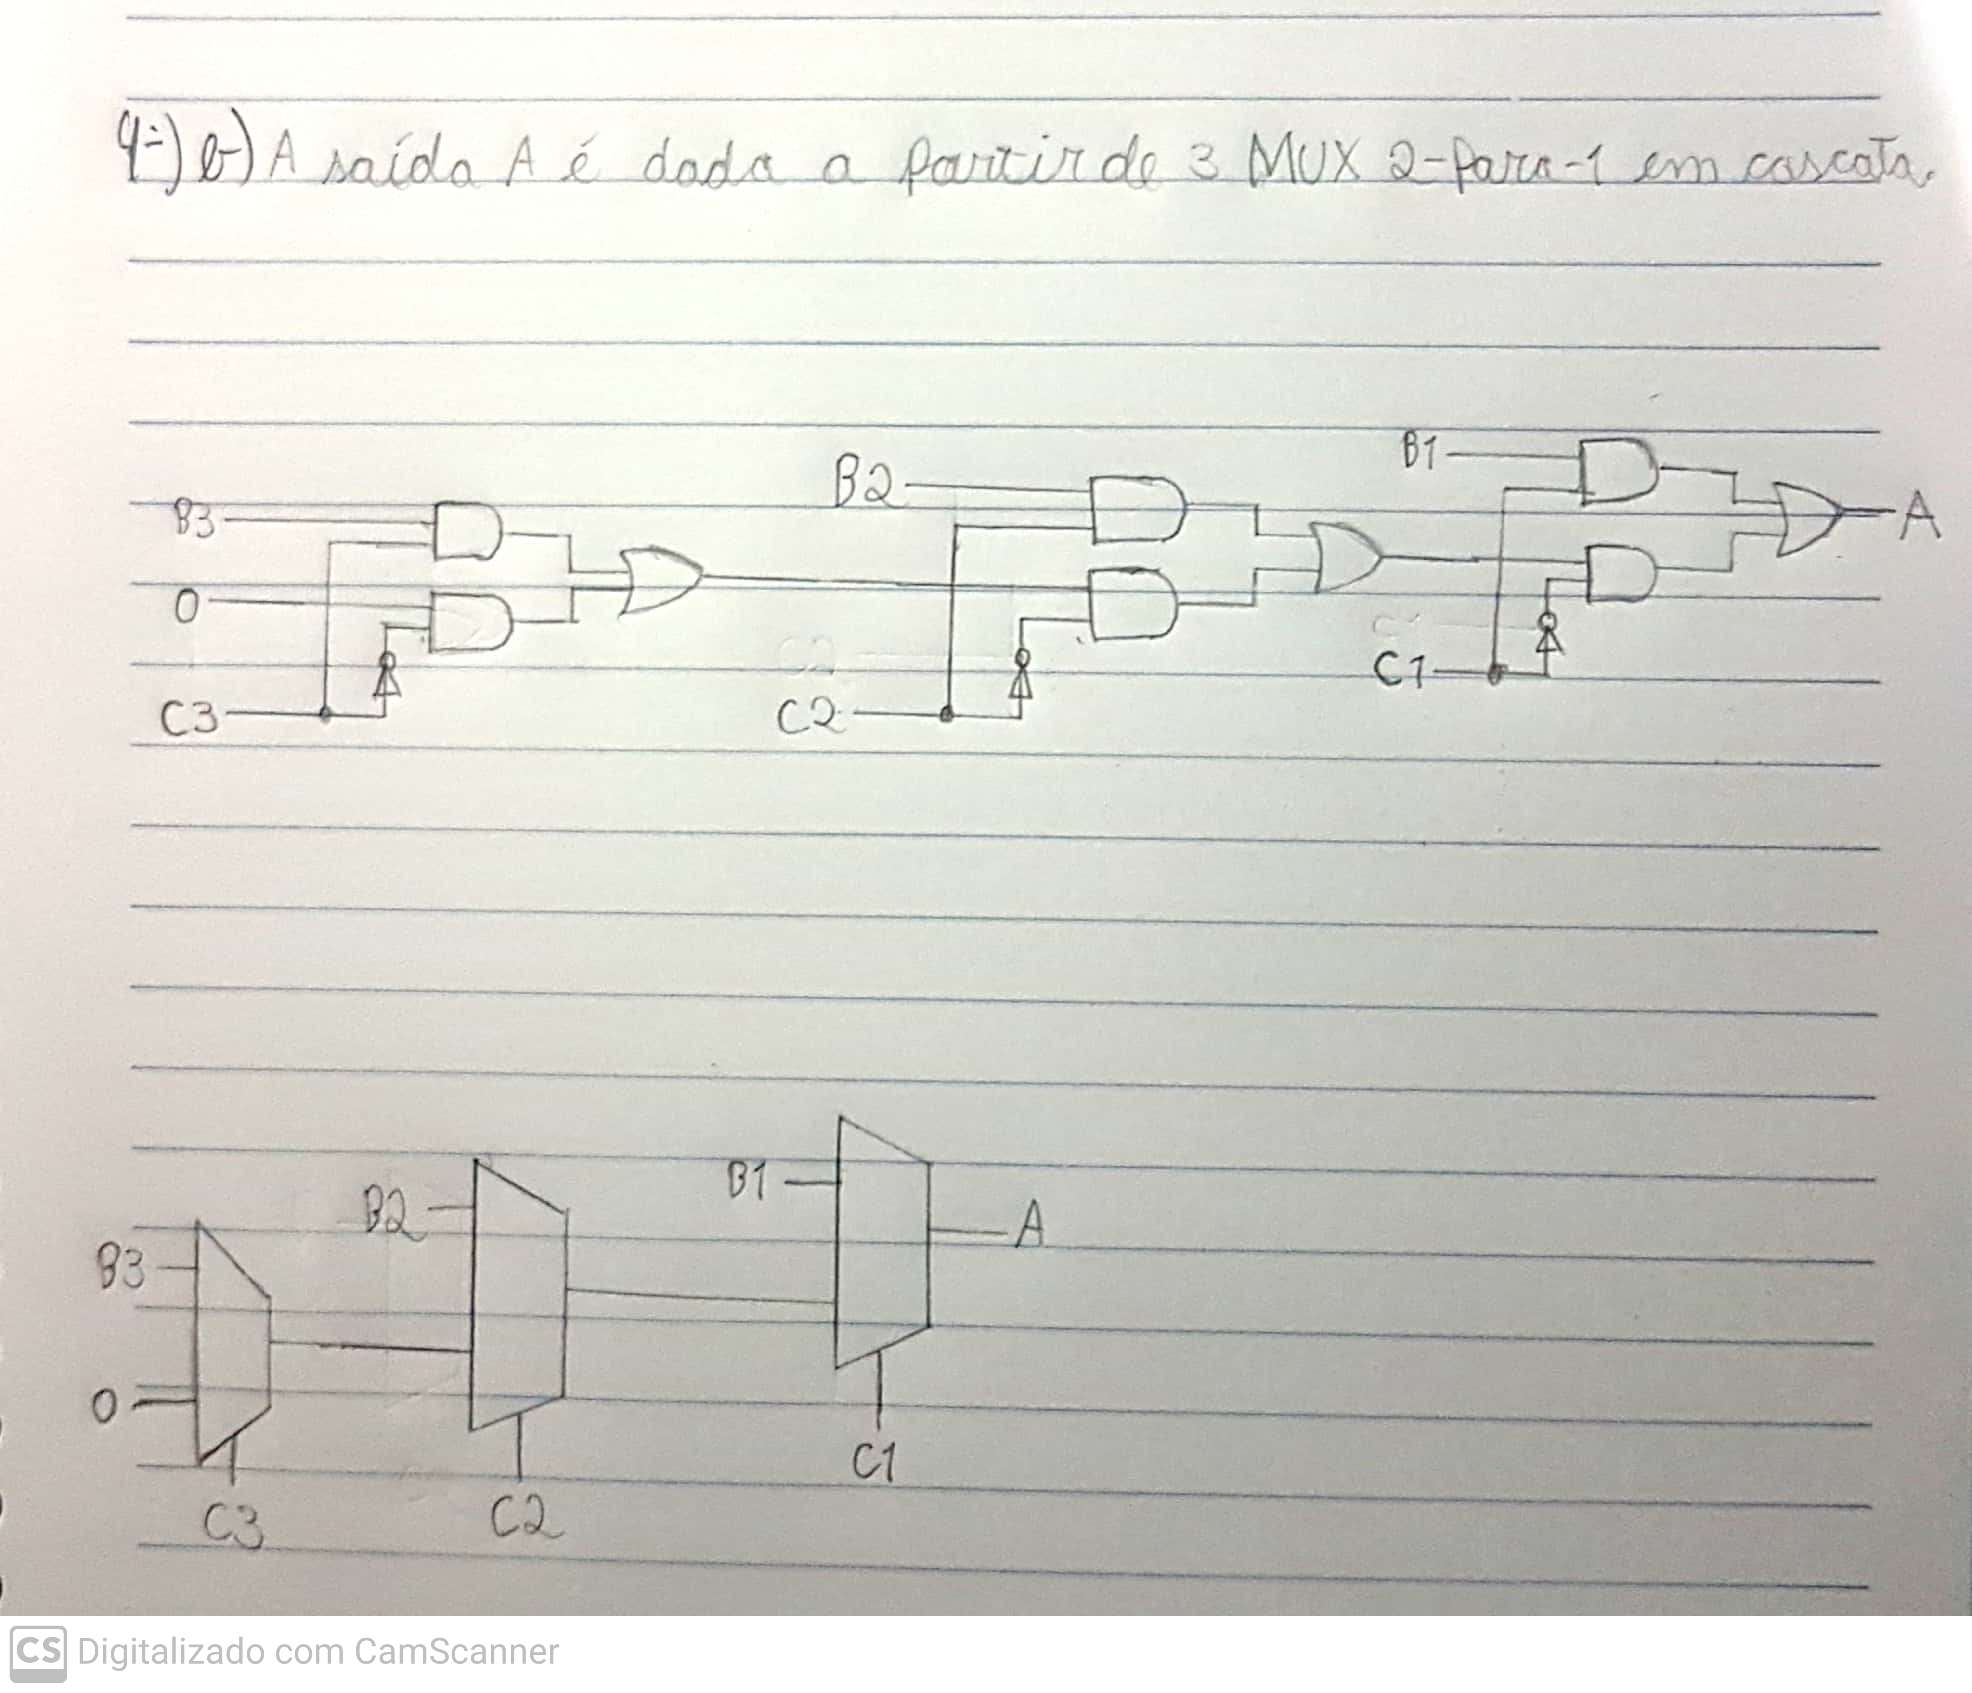 4-) b-) A saída A é dada a partir de 3 MUX 2-para-1 em cascata.
B1
B2
A
B3
0
C1
C3
C2
B1
B2
A
B3
0
C1
C3
C2
CS Digitalizado com CamScanner